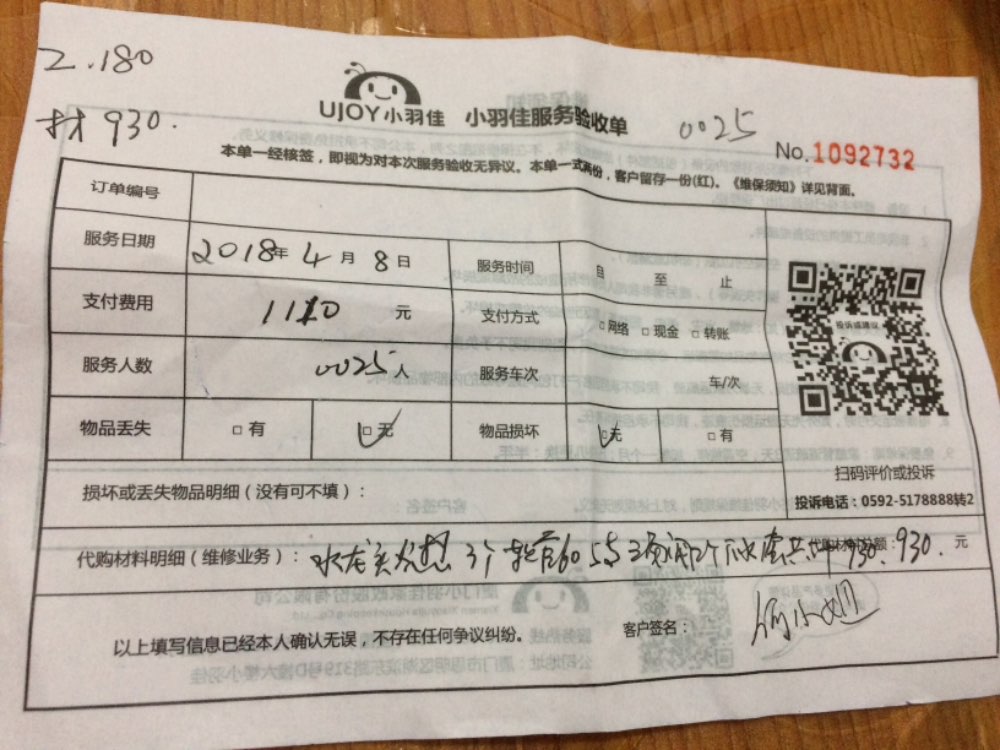 工.180
材930.
UJOY小羽佳 小羽佳服务验收单
0025
No.1092732
本单一经核签，即视为对本次服务验收无异议。本单一式两份，客户留存一份(红)。《维保须知》详见背面。
订单编号
服务日期 2018年4月8日 服务时间 自 至 止
支付费用 1110 元 支付方式 □网络 □现金 □转账
投诉或建议
服务人数 0025人 服务车次 车/次
物品丢失 □有 □无 物品损坏 □无 □有
扫码评价或投诉
损坏或丢失物品明细（没有可不填）：
投诉电话：0592-5178888转2
代购材料明细（维修业务）： 水龙头 3个 930. 930. 元
以上填写信息已经本人确认无误，不存在任何争议纠纷。 客户签名：